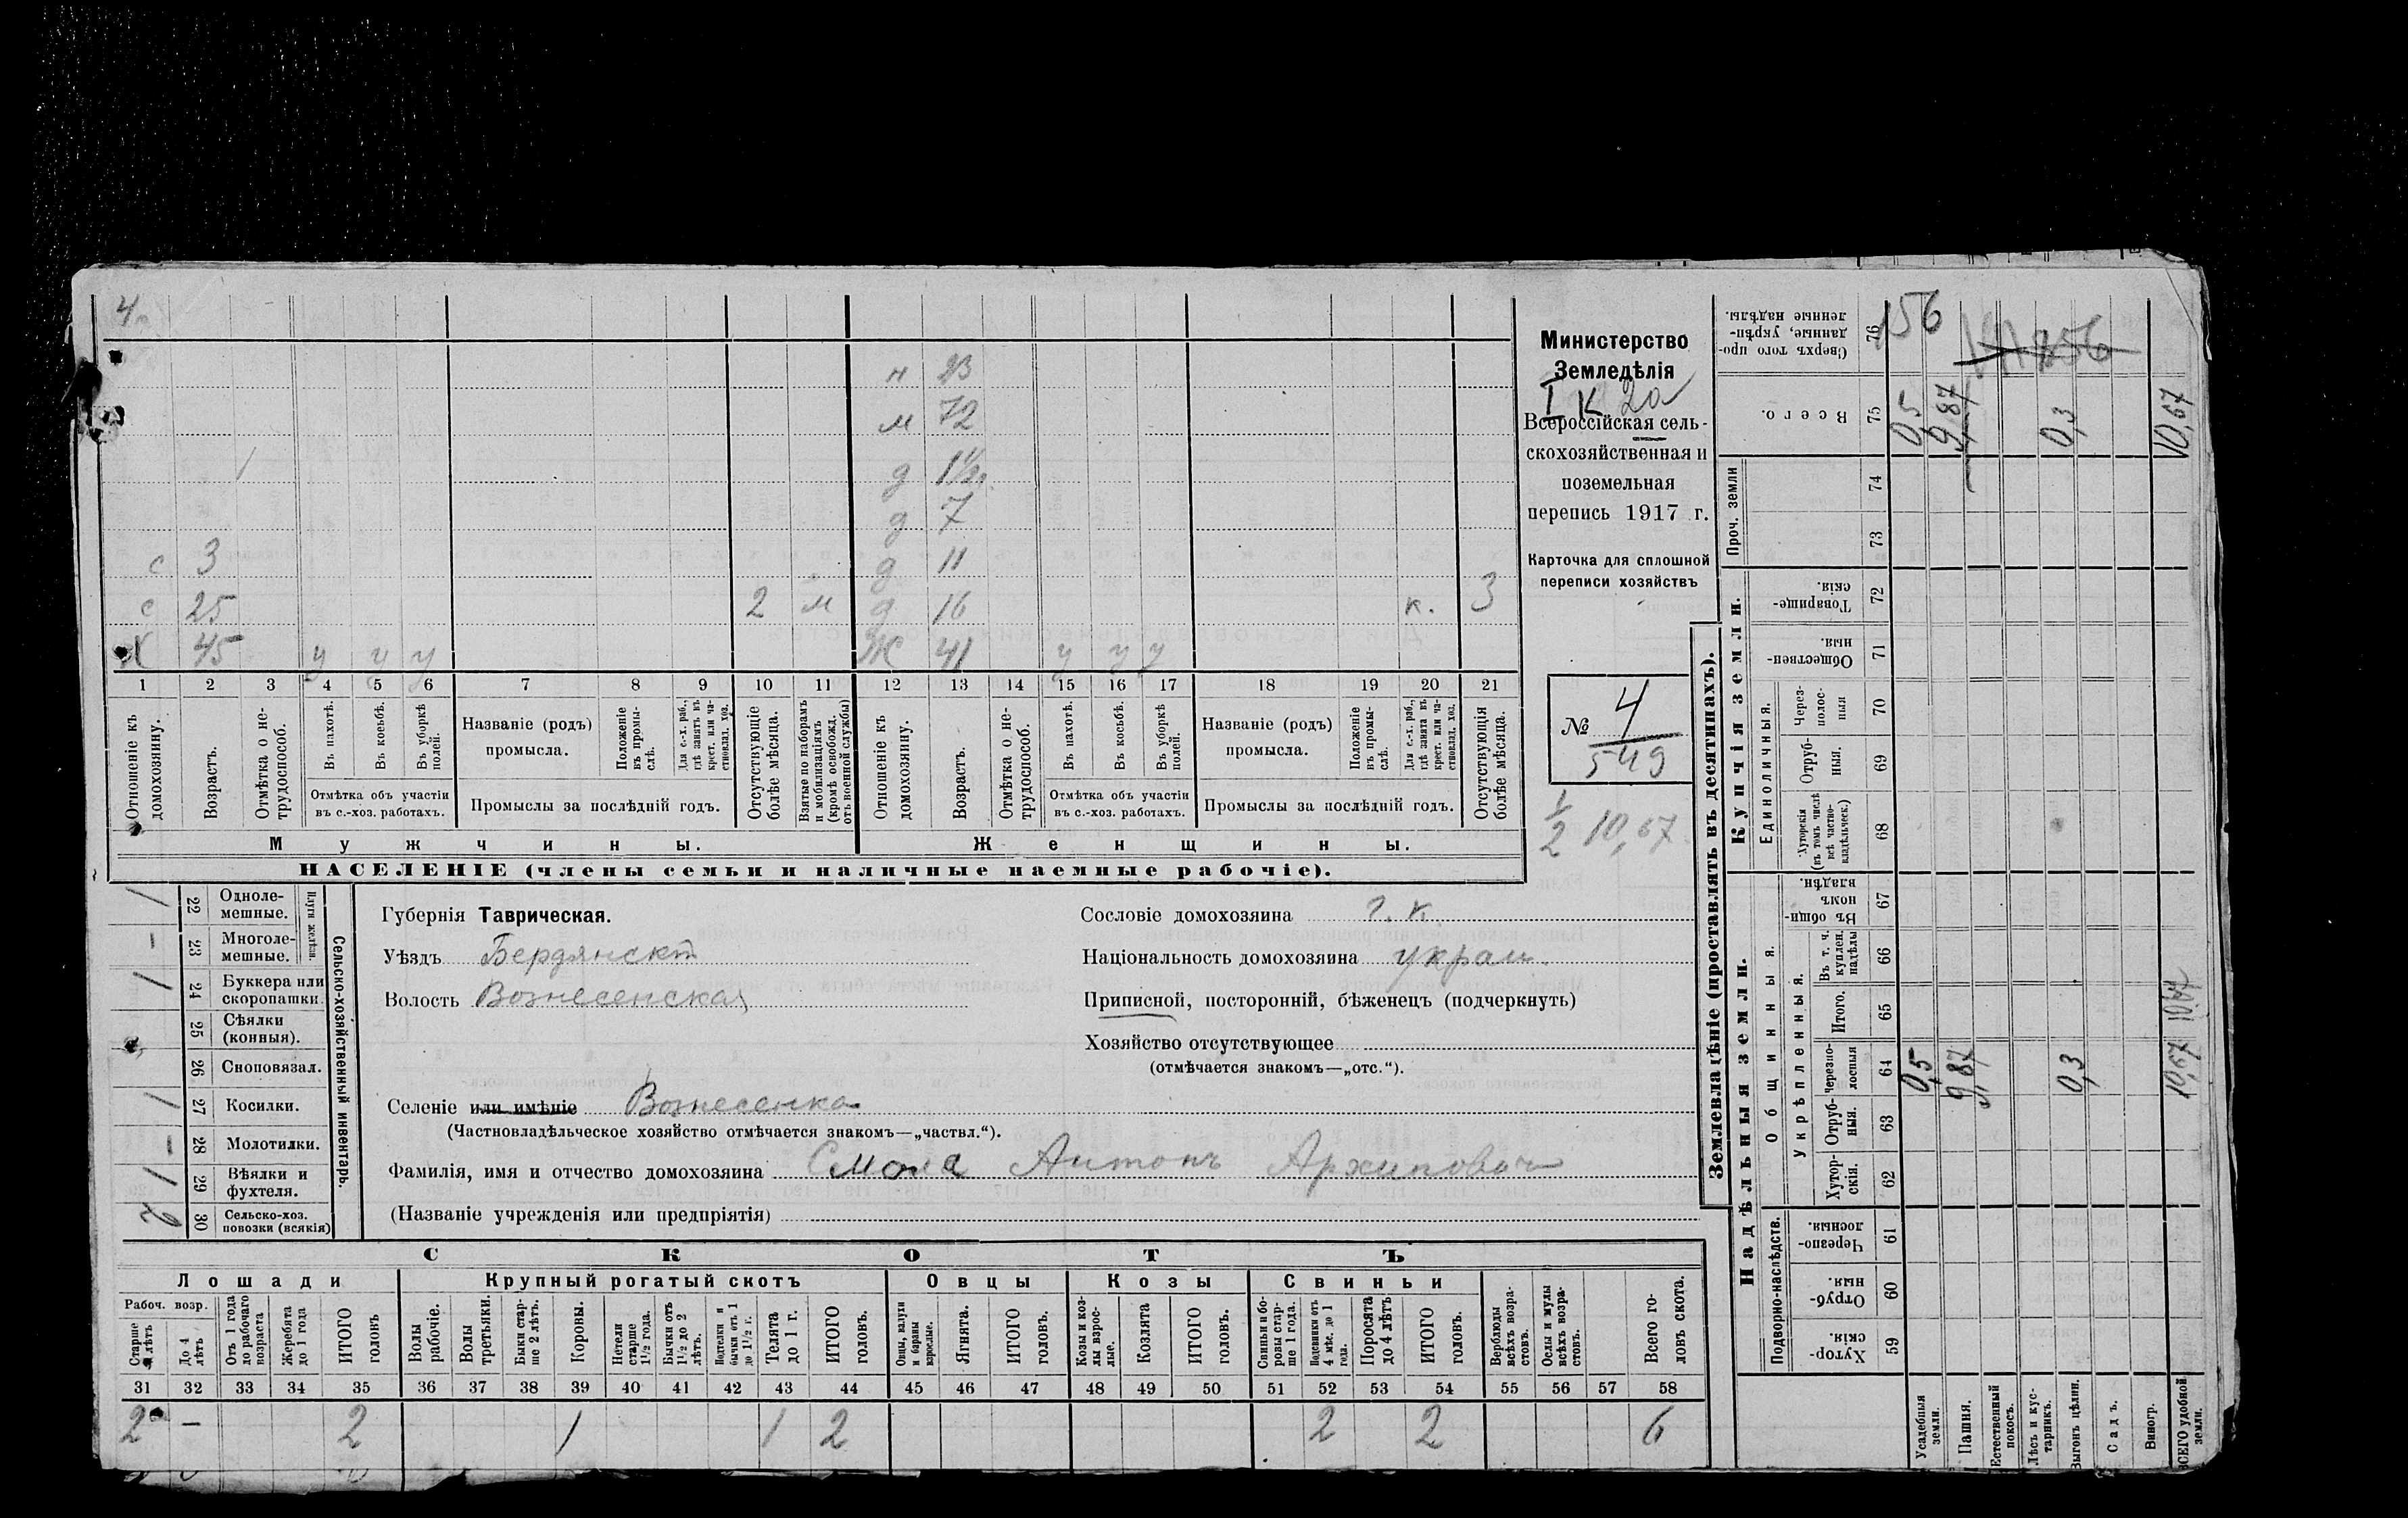 4
н 23
м 72
д 1½
д 7
с 3 д 11
с 25 2 м д 16 к. 3
Х 45 у у у Ж 41 у у у
1 2 3 4 5 6 7 8 9 10 11 12 13 14 15 16 17 18 19 20 21
Отношеніе къ домохозяину.
Возрастъ.
Отмѣтка о не-трудоспособ.
Въ пахотѣ.
Въ косьбѣ.
Въ уборкѣ полей.
Отмѣтка объ участіи въ с.-хоз. работахъ.
Названіе (родъ) промысла.
Положеніе въ промы-слѣ.
Для с.-х. раб., гдѣ занятъ въ крест. или ча-стновлад. хоз.
Промыслы за послѣдній годъ.
Отсутствующіе болѣе мѣсяца.
Взятые по наборамъ и мобилизаціямъ (кромѣ освобожд. отъ военной службы)
Отношеніе къ домохозяину.
Возрастъ.
Отмѣтка о не-трудоспособ.
Въ пахотѣ.
Въ косьбѣ.
Въ уборкѣ полей.
Отмѣтка объ участіи въ с.-хоз. работахъ.
Названіе (родъ) промысла.
Положеніе въ промы-слѣ.
Для с.-х. раб., гдѣ занятъ въ крест. или ча-стновлад. хоз.
Промыслы за послѣдній годъ.
Отсутствующія болѣе мѣсяца.
Мужчины. Женщины.
НАСЕЛЕНІЕ (члены семьи и наличные наемные рабочіе).
Министерство
Земледѣлія
I К 2а
Всероссійская сель-
скохозяйственная и
поземельная
перепись 1917 г.
Карточка для сплошной
переписи хозяйствъ
№ 4
549
1/2 10,67
Сельско-хозяйственный инвентарь.
Плуги желѣзн.
1 22 Одноле-мешные.
- 23 Многоле-мешные.
1 24 Буккера или скоропашки.
25 Сѣялки (конныя).
26 Сноповязал.
1 27 Косилки.
- 28 Молотилки.
1 29 Вѣялки и фухтеля.
2 30 Сельско-хоз. повозки (всякія)
Губернія Таврическая.
Уѣздъ Бердянскт
Волость Вознесенская
Селеніе или имѣніе Вознесенка
(Частновладѣльческое хозяйство отмѣчается знакомъ—„частвл.“).
Фамилія, имя и отчество домохозяина Смола Антонъ Архипович
(Названіе учрежденія или предпріятія)
Сословіе домохозяина г. к.
Національность домохозяина украи.
Приписной, посторонній, бѣженецъ (подчеркнуть)
Хозяйство отсутствующее
(отмѣчается знакомъ—„отс.“).
СКОТЪ
Лошади Крупный рогатый скотъ Овцы Козы Свиньи
Рабоч. возр.
Старше 4 лѣтъ
До 4 лѣтъ
Отъ 1 года до рабочаго возраста
Жеребята до 1 года
ИТОГО головъ
Волы рабочіе.
Волы третьяки.
Быки стар-ше 2 лѣтъ.
Коровы.
Нетели старше 1½ года.
Бычки отъ 1½ до 2 лѣтъ.
Подтелки и бычки отъ 1 до 1½ г.
Телята до 1 г.
ИТОГО головъ.
Овцы, валухи и бараны взрослые.
Ягнята.
ИТОГО головъ.
Козы и коз-лы взрос-лые.
Козлята
ИТОГО головъ.
Свиньи и бо-ровы стар-ше 1 года.
Подсвинки отъ 4 мѣс. до 1 года.
Поросята до 4 лѣтъ
ИТОГО головъ.
Верблюды всѣхъ возра-стовъ.
Ослы и мулы всѣхъ возра-стовъ.
Всего го-ловъ скота.
31 32 33 34 35 36 37 38 39 40 41 42 43 44 45 46 47 48 49 50 51 52 53 54 55 56 57 58
2 — 2 1 1 2 2 2 6
Землевладѣніе (проставлять въ десятинахъ).
Надѣльныя земли.
Купчія земли.
Проч. земли
Подворно-наслѣдств.
Общинныя.
Укрѣпленныя.
Единоличныя.
Хутор-скія. 59
Отруб-ныя. 60
Черезпо-лосныя. 61
Хутор-скія. 62
Отруб-ныя. 63
Черезпо-лосныя 64
Итого. 65
Въ т. ч. куплен. надѣлы 66
Въ общин-номъ владѣн. 67
Хуторскія (въ томъ числѣ всѣ частно-владѣльческ.) 68
Отруб-ныя. 69
Через-полос-ныя 70
Обществен-ныя. 71
Товарище-скія. 72
73
74
Всего. 75
Сверхъ того про-данные, укрѣп-ленные надѣлы. 76
Усадебныя земли. 0,5 0,5
Пашня. 9,87 9,87
Естественный покосъ.
Лѣсъ и кус-тарникъ.
Выгонъ цѣлин. 0,3 0,3
Садъ.
Виногр.
ВСЕГО удобной земли. 10,67 10,67 10,67
156